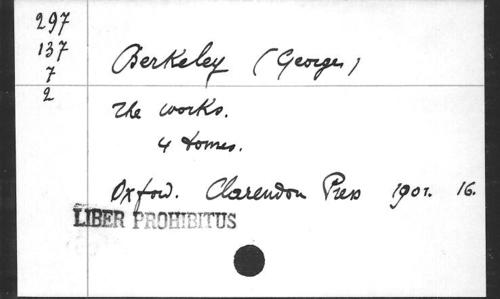 297
137
7
2
Berkeley (George)
The works.
4 tomes.
Oxford. Clarendon Press 1901. 16.
LIBER PROHIBITUS